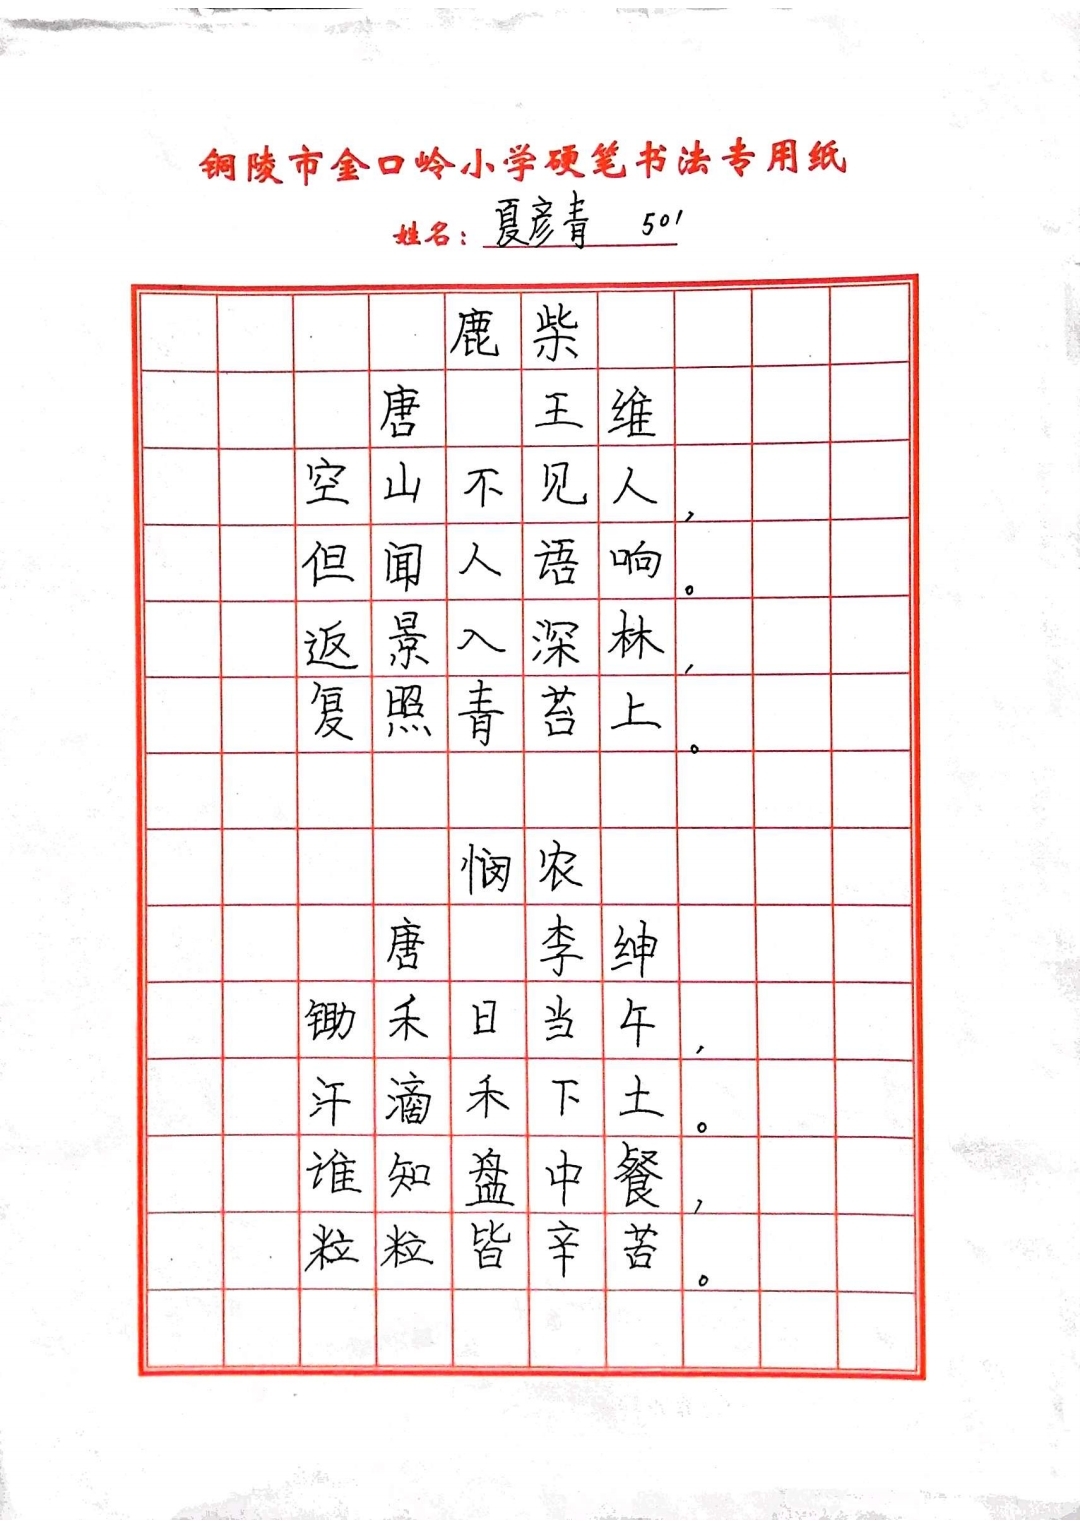 铜陵市金口岭小学硬笔书法专用纸
姓名：夏彦青 501
鹿柴
唐 王维
空山不见人，
但闻人语响。
返景入深林，
复照青苔上。
悯农
唐 李绅
锄禾日当午，
汗滴禾下土。
谁知盘中餐，
粒粒皆辛苦。